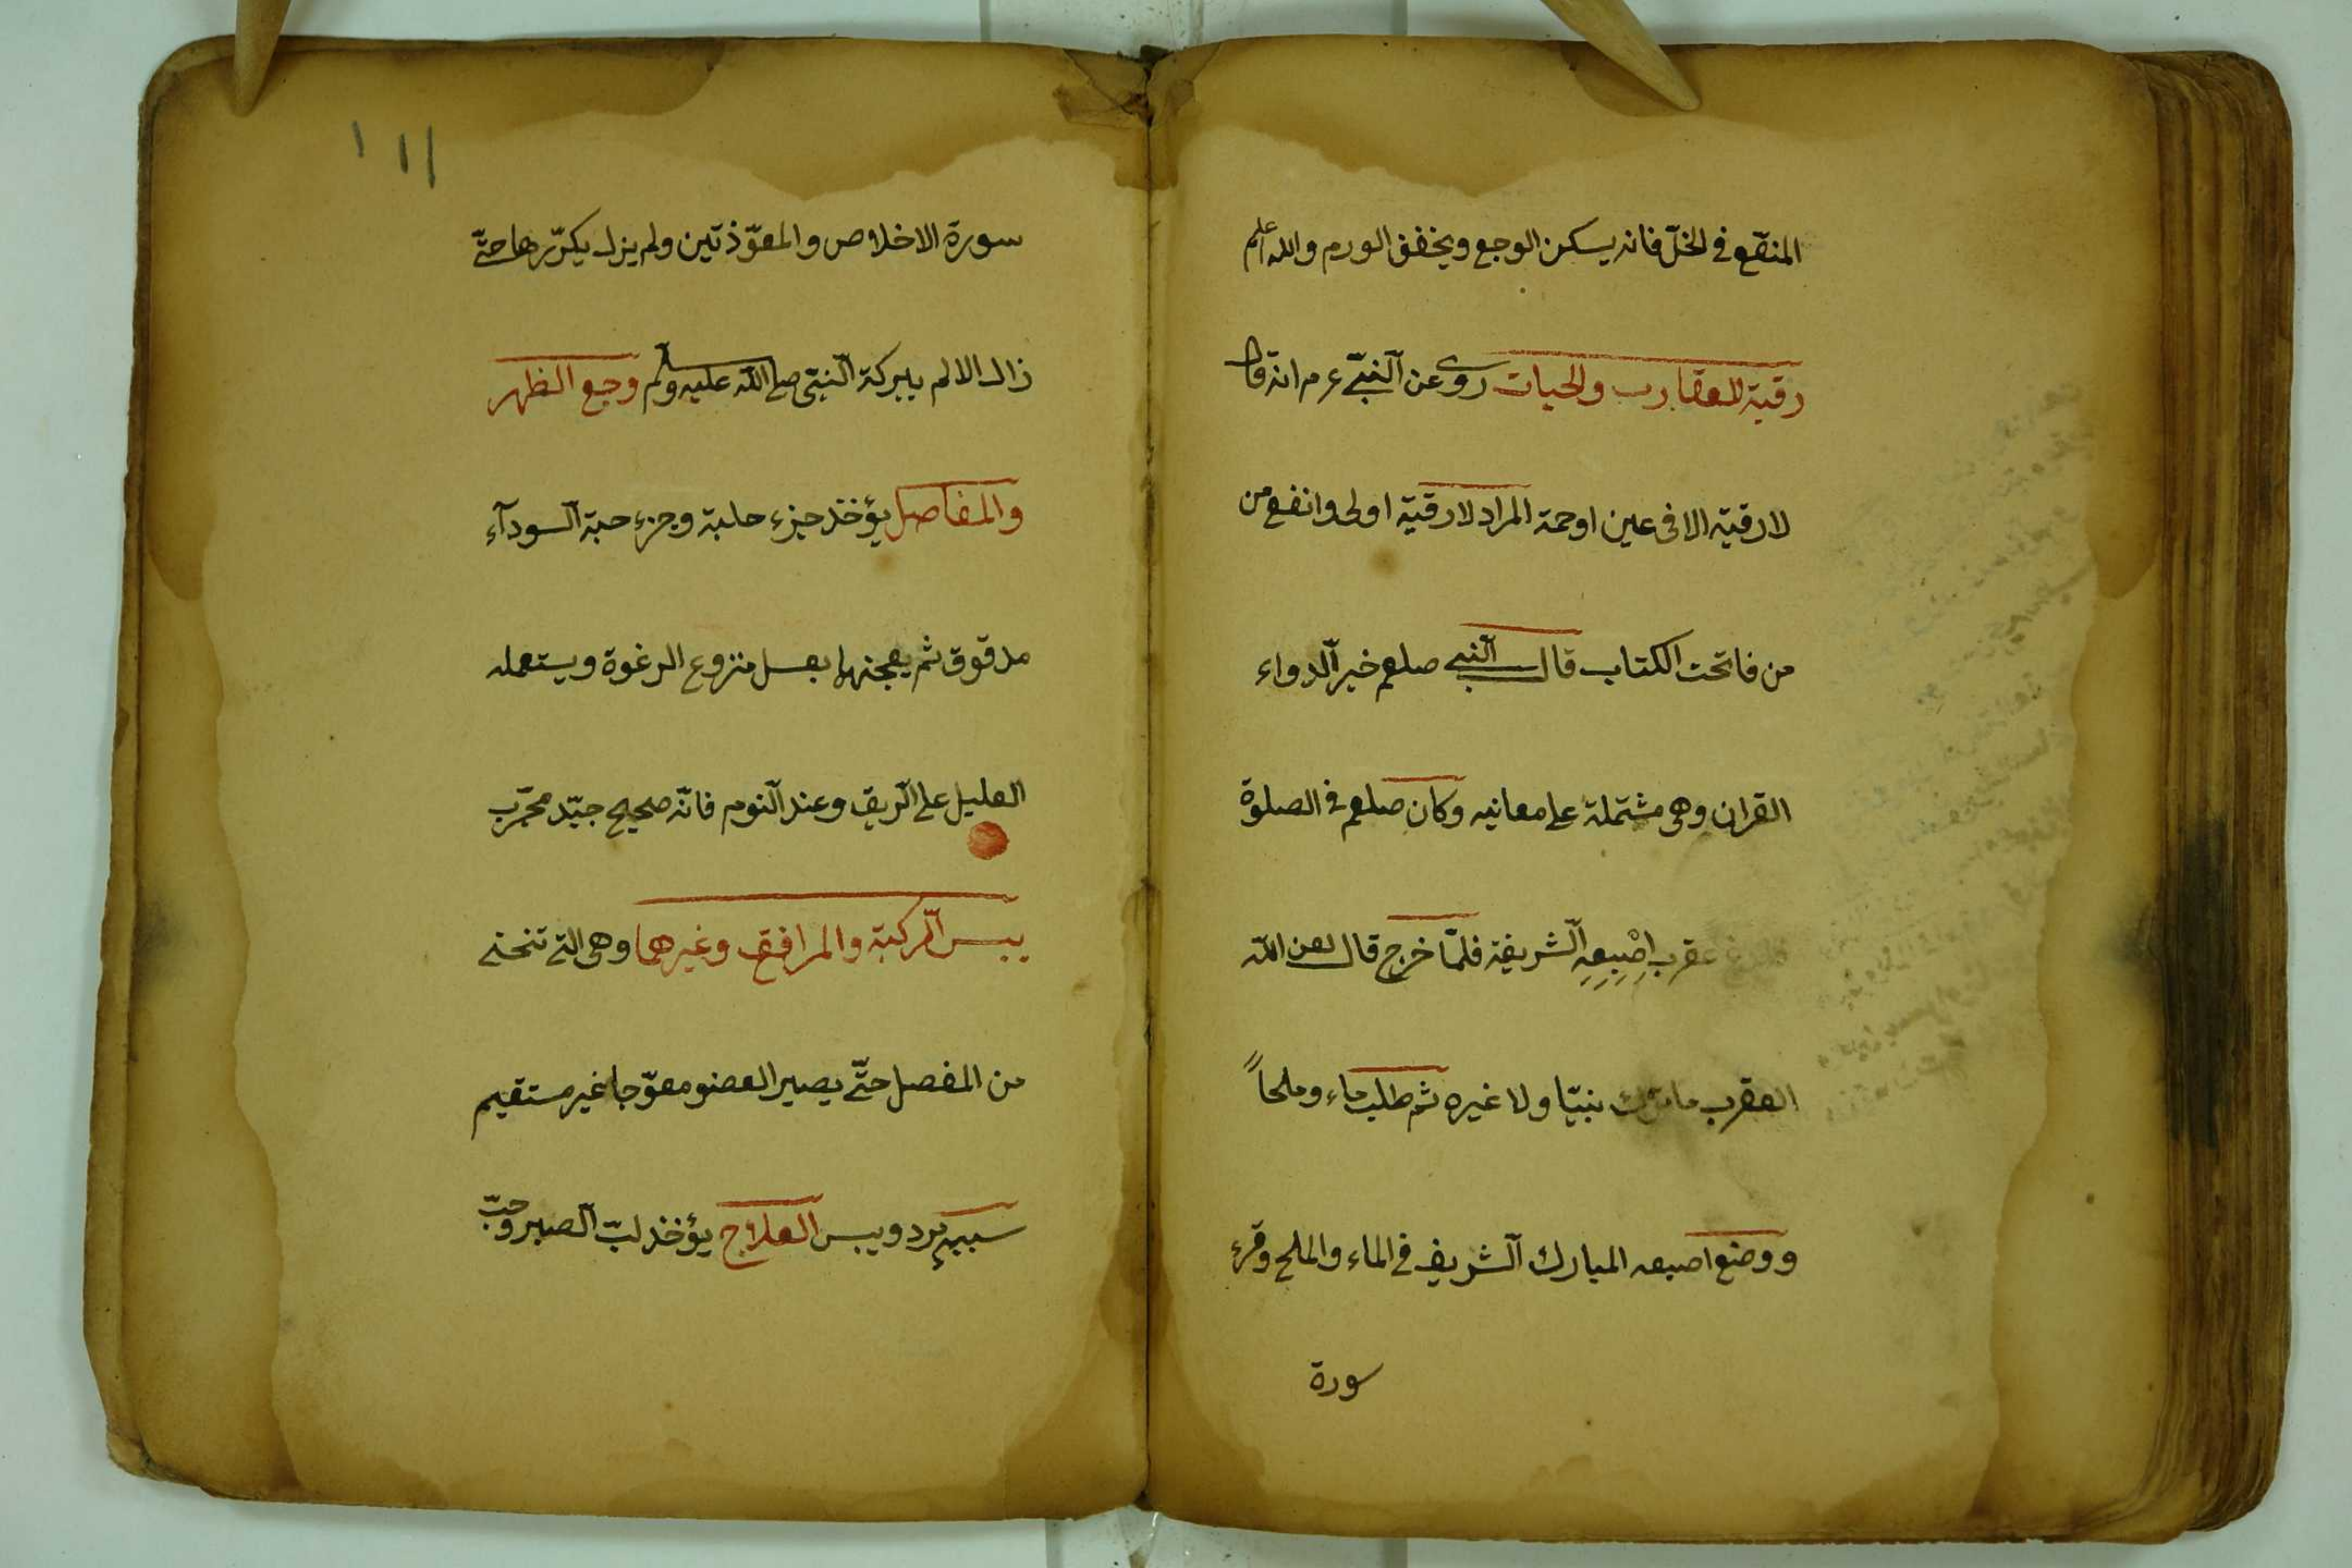 المنقع في الخل فانه يسكن الوجع ويخفف الورم والله اعلم
رقية للعقارب والحيات روى عن النبى ع م انه قال
لا رقية الا فى عين او حمة المراد لا رقية اولى وانفع من
من فاتحت الكتاب قال النبى صلعم خير الدواء
القران وهى مشتملة على معانيه وكان صلعم في الصلوة
عقرب اصبعه الشريفة فلما خرج قال لعن الله
العقرب ما نبيا ولا غيره ثم طلب ماء وملحاً
ووضع اصبعه المبارك الشريف في الماء والملح وقرء
سورة
١١١
سورة الاخلاص والمعوّذتين ولم يزل يكرّرها حتّى
زال الالم ببركة النبىّ صلى الله عليه وسلم وجع الظهر
والمفاصل يؤخذ جزء حلبة وجزء حبة السودآء
مدقوق ثم يعجنها بعسل منزوع الرغوة ويستعمله
العليل على الريق وعند النوم فانّه صحيح جيّد مجرّب
يبس الركبة والمرافق وغيرهما وهى التى تنحنى
من المفصل حتّى يصير العضو معوّجا غير مستقيم
سببه برد ويبس العلاج يؤخذ لبّ الصبر وحبّ